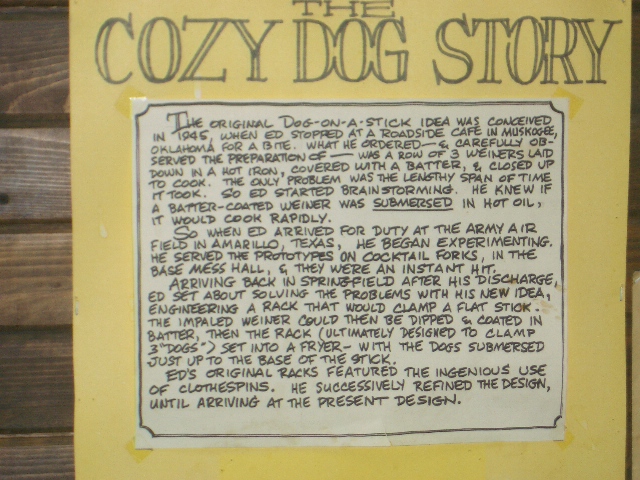 THE
COZY DOG STORY
THE ORIGINAL DOG-ON-A-STICK IDEA WAS CONCEIVED
IN 1945, WHEN ED STOPPED AT A ROADSIDE CAFE IN MUSKOGEE,
OKLAHOMA FOR A BITE. WHAT HE ORDERED — & CAREFULLY OB-
SERVED THE PREPARATION OF — WAS A ROW OF 3 WEINERS LAID
DOWN IN A HOT IRON, COVERED WITH A BATTER, & CLOSED UP
TO COOK. THE ONLY PROBLEM WAS THE LENGTHY SPAN OF TIME
IT TOOK. SO ED STARTED BRAINSTORMING. HE KNEW IF
A BATTER-COATED WEINER WAS SUBMERSED IN HOT OIL,
IT WOULD COOK RAPIDLY.
SO WHEN ED ARRIVED FOR DUTY AT THE ARMY AIR
FIELD IN AMARILLO, TEXAS, HE BEGAN EXPERIMENTING.
HE SERVED THE PROTOTYPES ON COCKTAIL FORKS, IN THE
BASE MESS HALL, & THEY WERE AN INSTANT HIT.
ARRIVING BACK IN SPRINGFIELD AFTER HIS DISCHARGE,
ED SET ABOUT SOLVING THE PROBLEMS WITH HIS NEW IDEA,
ENGINEERING A RACK THAT WOULD CLAMP A FLAT STICK.
THE IMPALED WEINER COULD THEN BE DIPPED & COATED IN
BATTER, THEN THE RACK (ULTIMATELY DESIGNED TO CLAMP
3 "DOGS") SET INTO A FRYER - WITH THE DOGS SUBMERSED
JUST UP TO THE BASE OF THE STICK.
ED'S ORIGINAL RACKS FEATURED THE INGENIOUS USE
OF CLOTHESPINS. HE SUCCESSIVELY REFINED THE DESIGN,
UNTIL ARRIVING AT THE PRESENT DESIGN.